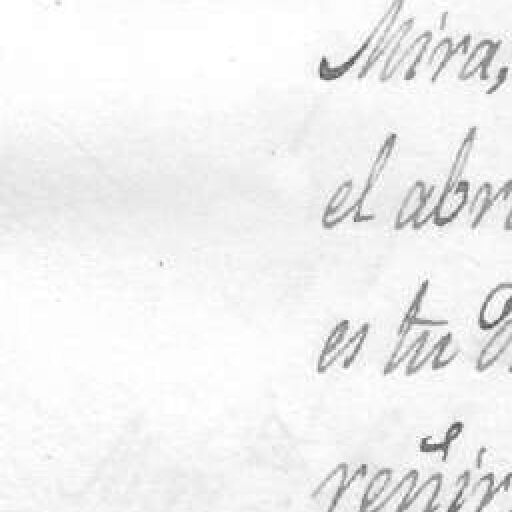 Mira,
el abri
es tu
reñir